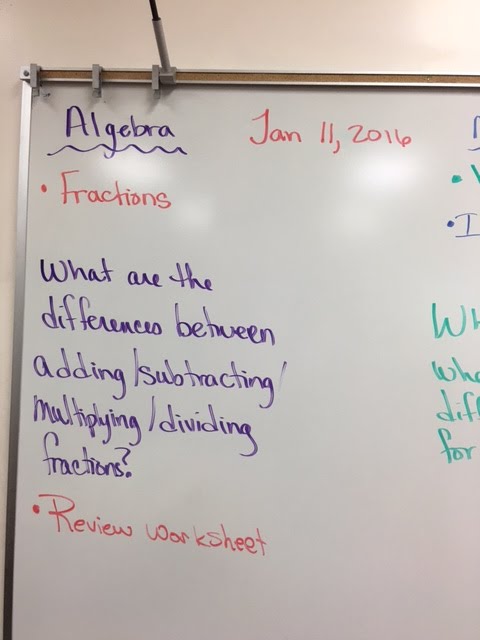 Algebra
Jan 11, 2016
• Fractions
What are the
differences between
adding/subtracting/
multiplying/dividing
fractions?
• Review worksheet
for